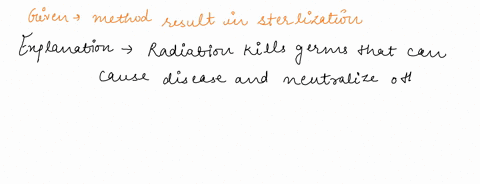 Given → method result in sterlization
Explanation → Radiation kills germs that can
cause disease and neutralize ot